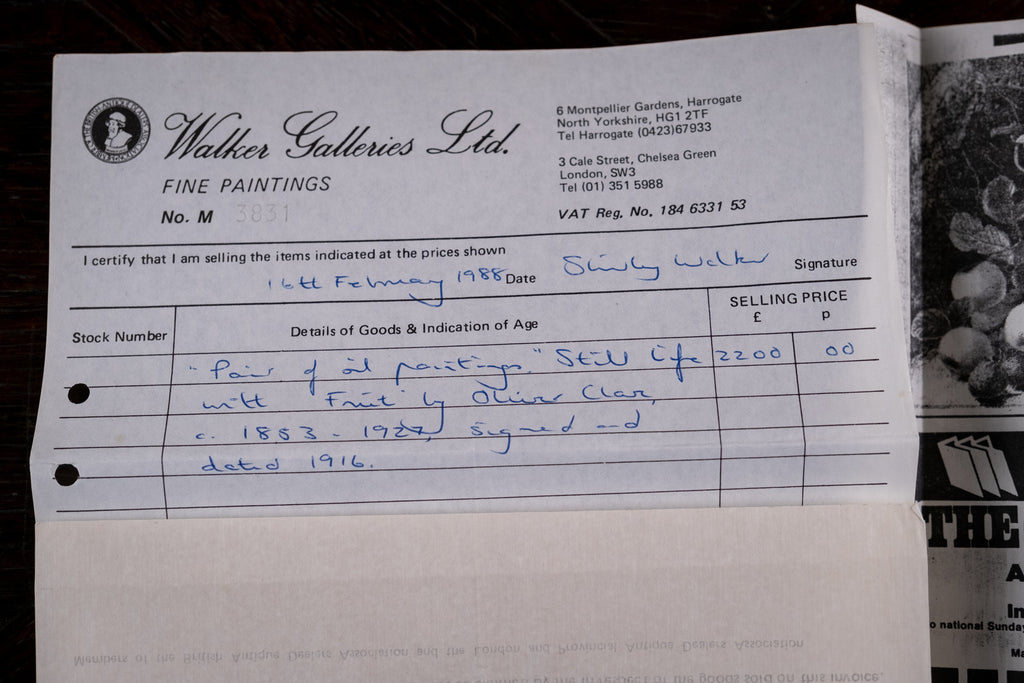 Walker Galleries Ltd.
FINE PAINTINGS
No. M 3831
6 Montpellier Gardens, Harrogate
North Yorkshire, HG1 2TF
Tel Harrogate (0423)67933
3 Cale Street, Chelsea Green
London, SW3
Tel (01) 351 5988
VAT Reg. No. 184 6331 53
I certify that I am selling the items indicated at the prices shown
16th February 1988 Date Shirley Walker Signature
Stock Number Details of Goods & Indication of Age SELLING PRICE
£ p
"Pair of oil paintings." Still life 2200 00
with Fruit by Oliver Clare,
c. 1853 - 1927, signed and
dated 1916.
Members of the British Antique Dealers Association and the London and Provincial Antique Dealers Association
the goods sold on this invoice.
THE
A
In
o national Sunda
Ma